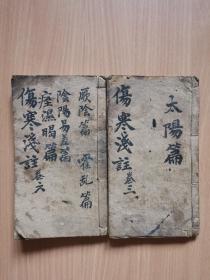 太陽篇
傷寒淺註 卷三
厥陰篇 霍乱篇
陰陽易差篇
痙濕暍篇
傷寒淺註 卷六